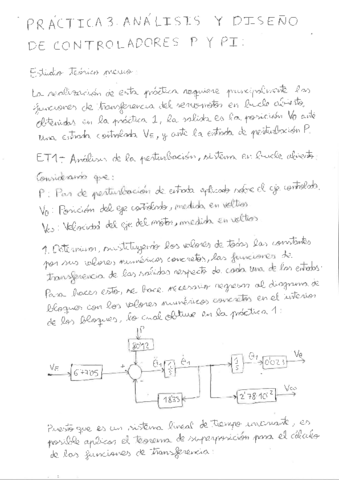 PRÁCTICA 3. ANÁLISIS Y DISEÑO
DE CONTROLADORES P Y PI:
Estudio Teórico previo:
La realización de esta práctica requiere principalmente las
funciones de transferencia del servomotor en bucle abierto,
obtenidas en la práctica 1, la salida es la posición Vθ ante
una entrada controlada VE, y ante la entrada de perturbación P.
ET1- Análisis de la perturbación, sistema en bucle abierto
Consideramos que:
P: Par de perturbación de entrada aplicado sobre el eje controlado
Vθ: Posición del eje controlado, medida en voltios
Vω: Velocidad del eje del motor, medida en voltios
1. Determinar, sustituyendo los valores de todas las constantes
por sus valores numéricos concretos, las funciones de
transferencia de las salidas respecto de cada una de las entradas:
Para hacer esto, se hace necesario regresar al diagrama de
bloques con los valores numéricos concretos en el interior
de los bloques, lo cual obtuve en la práctica 1:
P
Vθ
Vω
Puesto que es un sistema lineal de tiempo invariante, es
posible aplicar el teorema de superposición para el cálculo
de las funciones de transferencia: